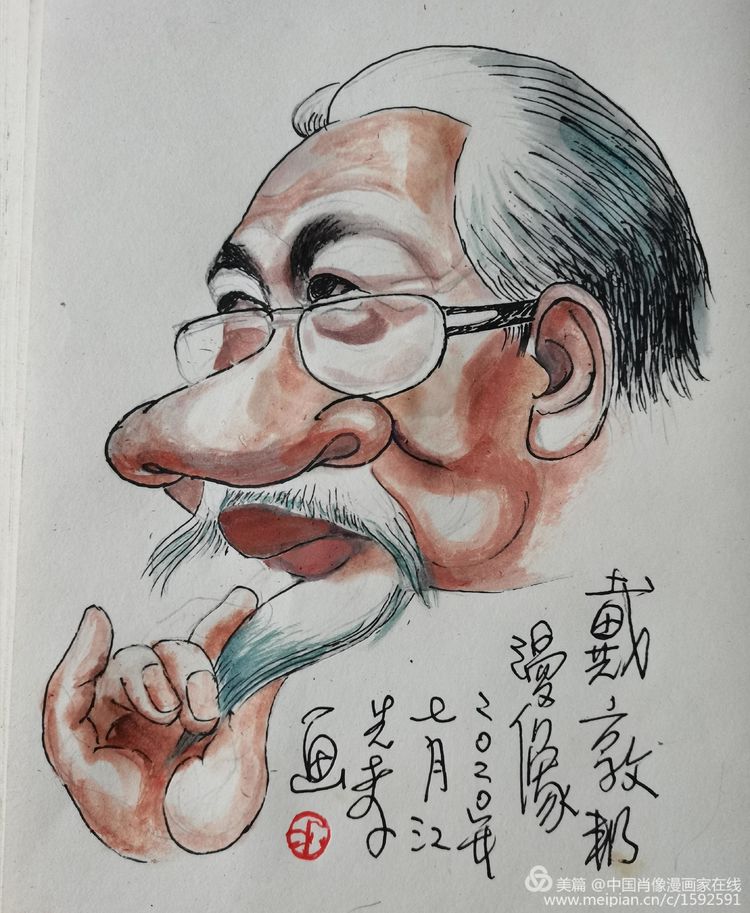 戴敦邦
漫像
二〇二〇年
七月江
先
画
美篇 @中国肖像漫画家在线
www.meipian.cn/c/1592591